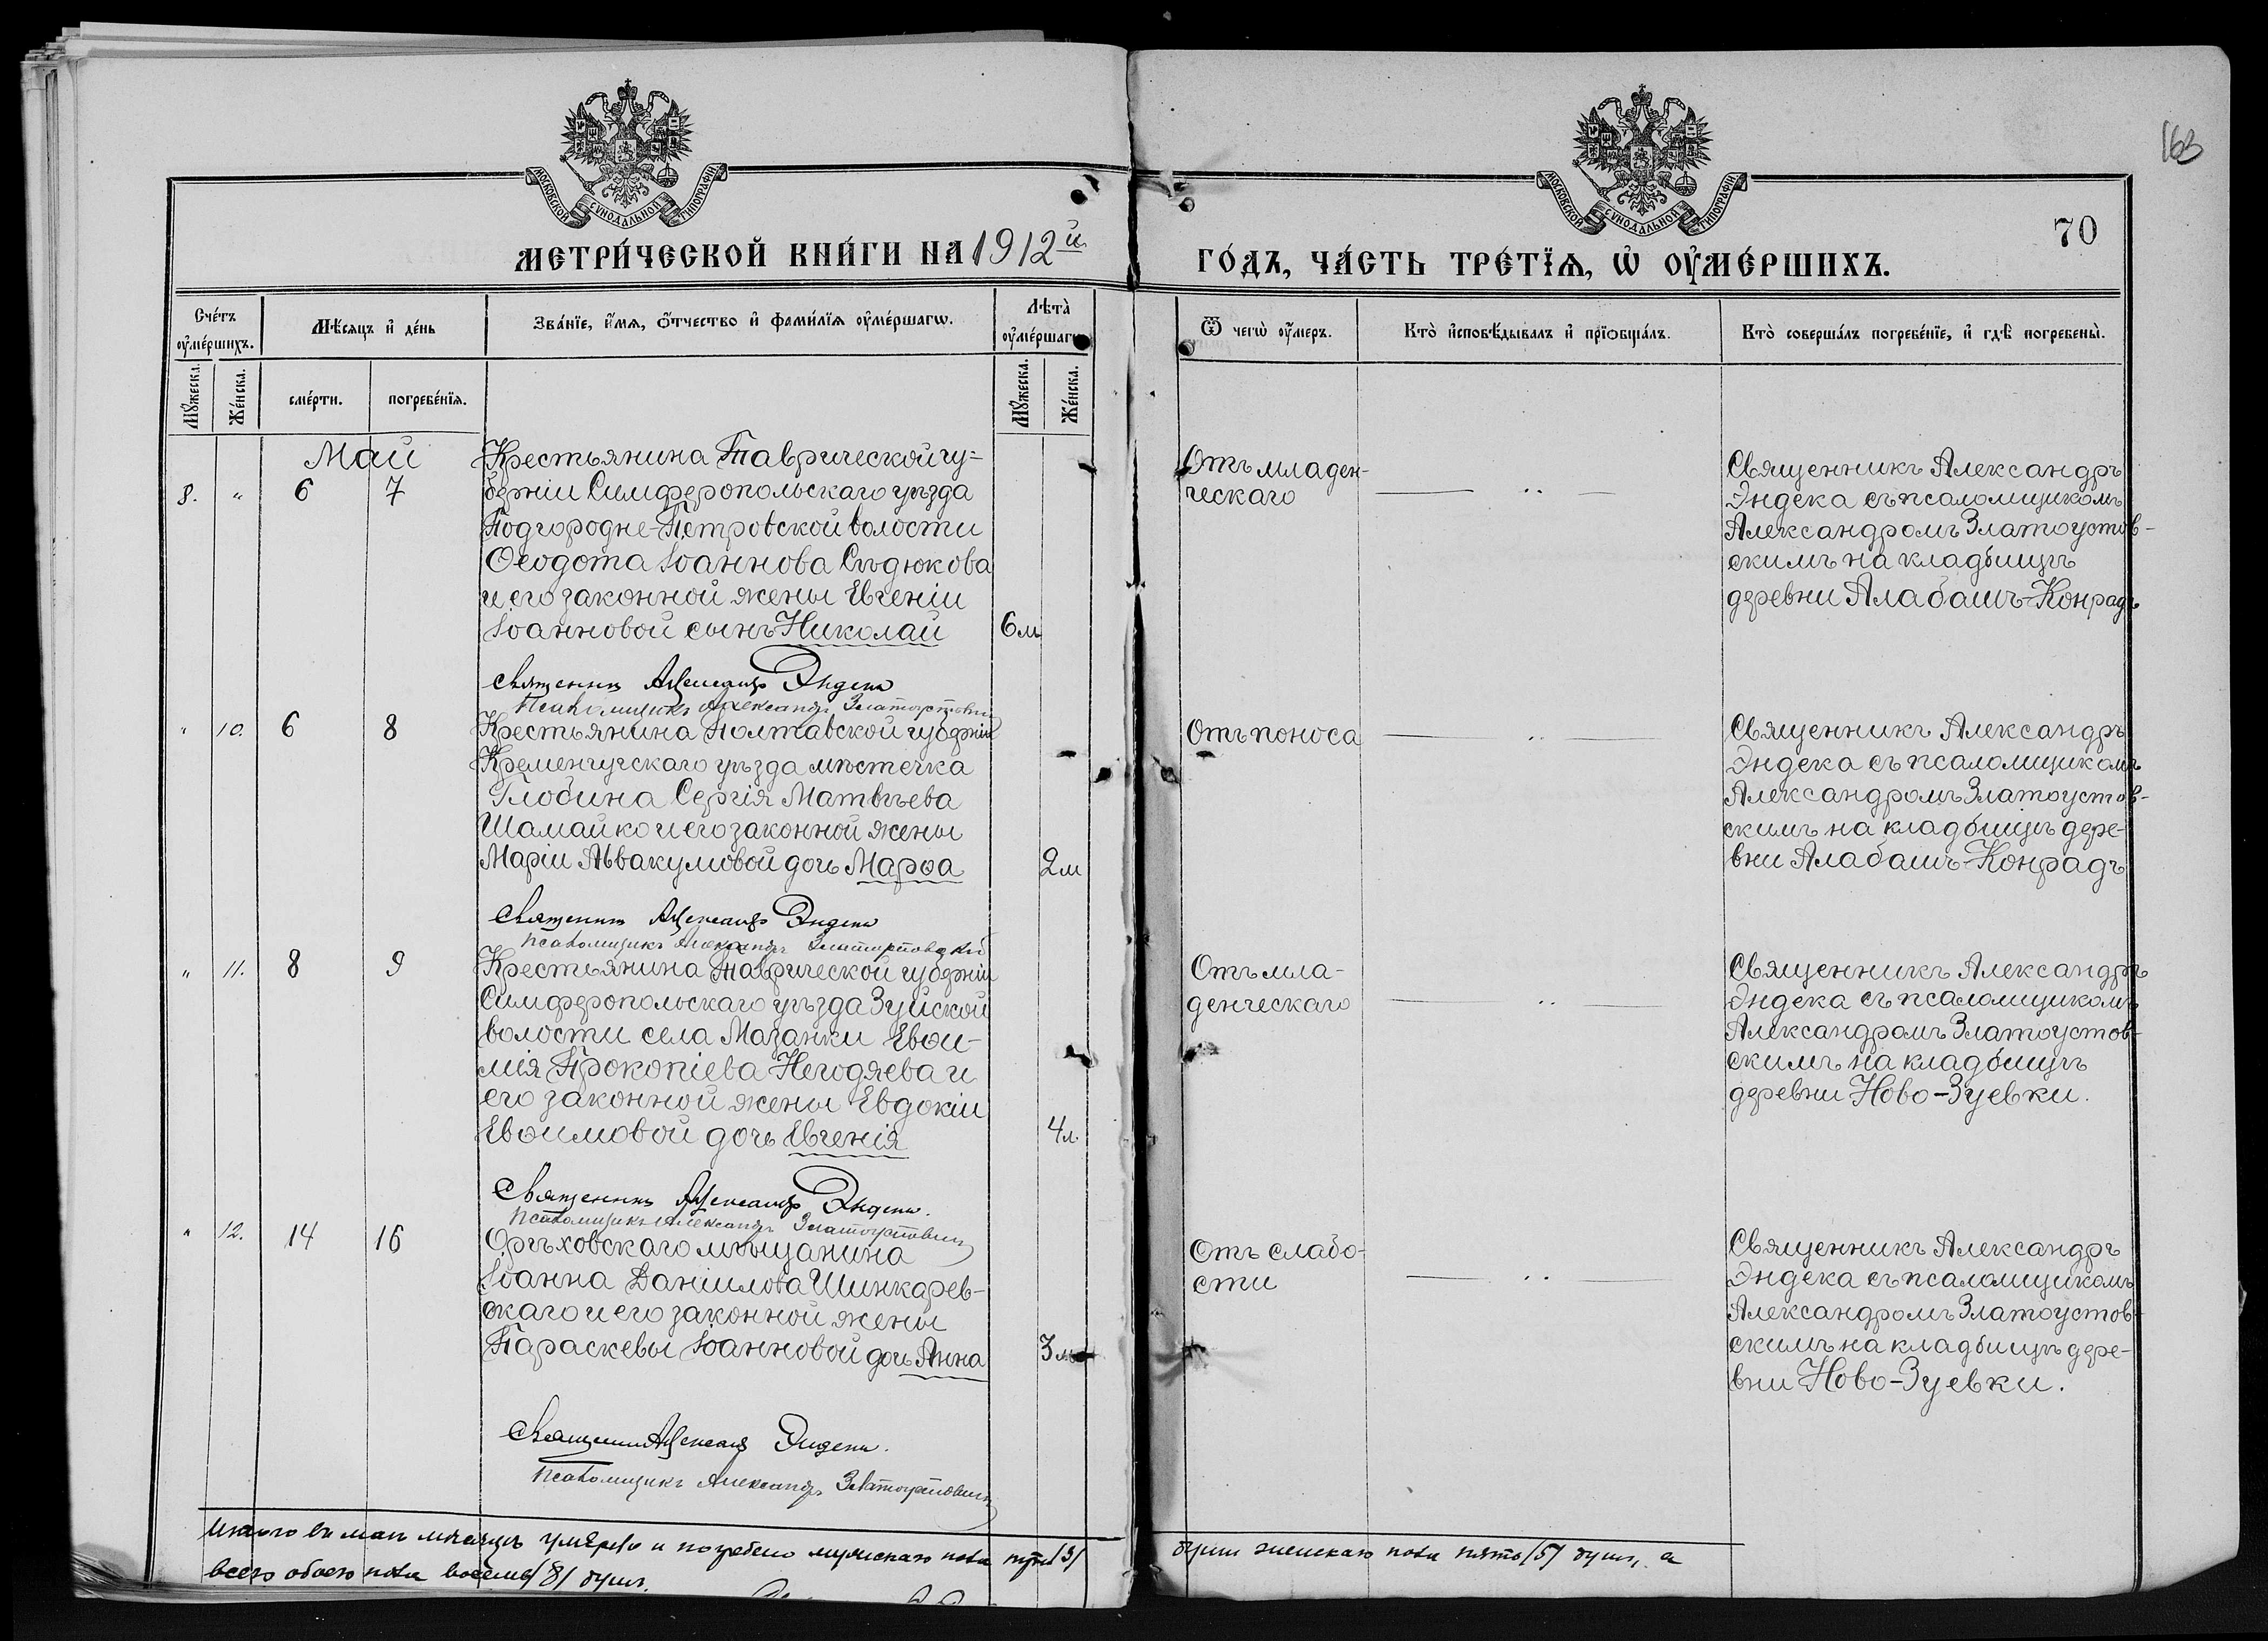 163
МОСКОВСКОЙ СѴНОДАЛЬНОЙ ТИПОГРАФІИ
МОСКОВСКОЙ СѴНОДАЛЬНОЙ ТИПОГРАФІИ
70
МЕТРИ́ЧЕСКОЙ КНИ́ГИ НА 1912й
ГО́ДЪ, ЧА́СТЬ ТРЕ́ТЇѦ, Ѽ ОУ҆МЕ́РШИХЪ.
Сче́тъ оу҆ме́ршихъ.
Мѣ́сѧцъ и҆ де́нь
Зва́нїе, и҆́мѧ, ѻ҆́тчество и҆ фами́лїѧ оу҆ме́ршагѡ.
Лѣ́та оу҆ме́ршагѡ
Ѿ чегѡ̀ оу҆́меръ.
Кто̀ и҆сповѣ́дывалъ и҆ прїѻбща́лъ.
Кто̀ соверша́лъ погребе́нїе, и҆ гдѣ̀ погребены̀.
Мꙋ́жеска.
Же́нска.
сме́рти.
погребе́нїѧ.
Мꙋ́жеска.
Же́нска.
Май
8. " 6 7
Крестьянина Таврической гу=
берніи Симферопольскаго уѣзда
Подгородне-Петровской волости
Ѳеодота Іоаннова Сѣдюкова
и его законной жены Евгеніи
Іоанновой сынъ Николай
6м
Отъ младен-
ческаго
Священникъ Александръ
Эндека съ псаломщикомъ
Александромъ Златоустов-
скимъ на кладбищѣ
деревни Алабашъ-Конрадъ
Священникъ Александръ Эндека
Псаломщикъ Александръ Златоустовскій
" 10. 6 8
Крестьянина Полтавской губерніи
Кременчугскаго уѣзда мѣстечка
Глобина Сергія Матвѣева
Шамайко и его законной жены
Маріи Аввакумовой дочь Марѳа
2м
Отъ поноса
Священникъ Александръ
Эндека съ псаломщикомъ
Александромъ Златоустов-
скимъ на кладбищѣ дере-
вни Алабашъ-Конрадъ
Священникъ Александръ Эндека
Псаломщикъ Александръ Златоустовскій
" 11. 8 9
Крестьянина Таврической губерніи
Симферопольскаго уѣзда Зуйской
волости села Мазанки Евѳи-
мія Прокопіева Негодяева и
его законной жены Евдокіи
Евѳимовой дочь Евгенія
4л.
Отъ мла-
денческаго
Священникъ Александръ
Эндека съ псаломщикомъ
Александромъ Златоустов-
скимъ на кладбищѣ
деревни Ново-Зуевки.
Священникъ Александръ Эндека.
Псаломщикъ Александръ Златоустовскій
" 12. 14 16
Орѣховскаго мѣщанина
Іоанна Даніилова Шинкарев-
скаго и его законной жены
Параскевы Іоанновой дочь Анна
3м
Отъ слабо-
сти
Священникъ Александръ
Эндека съ псаломщикомъ
Александромъ Златоустов-
скимъ на кладбищѣ дере-
вни Ново-Зуевки.
Священникъ Александръ Эндека.
Псаломщикъ Александръ Златоустовскій
Итого въ маѣ мѣсяцѣ умерло и погребено мужскаго пола три /3/ души женскаго пола пять /5/ душъ, а
всего обоего пола восемь /8/ душъ.